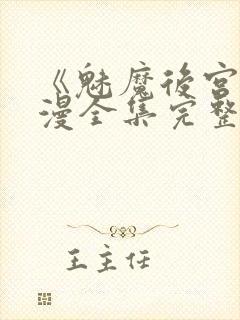 《魅魔後宮
漫全集完整
王主任